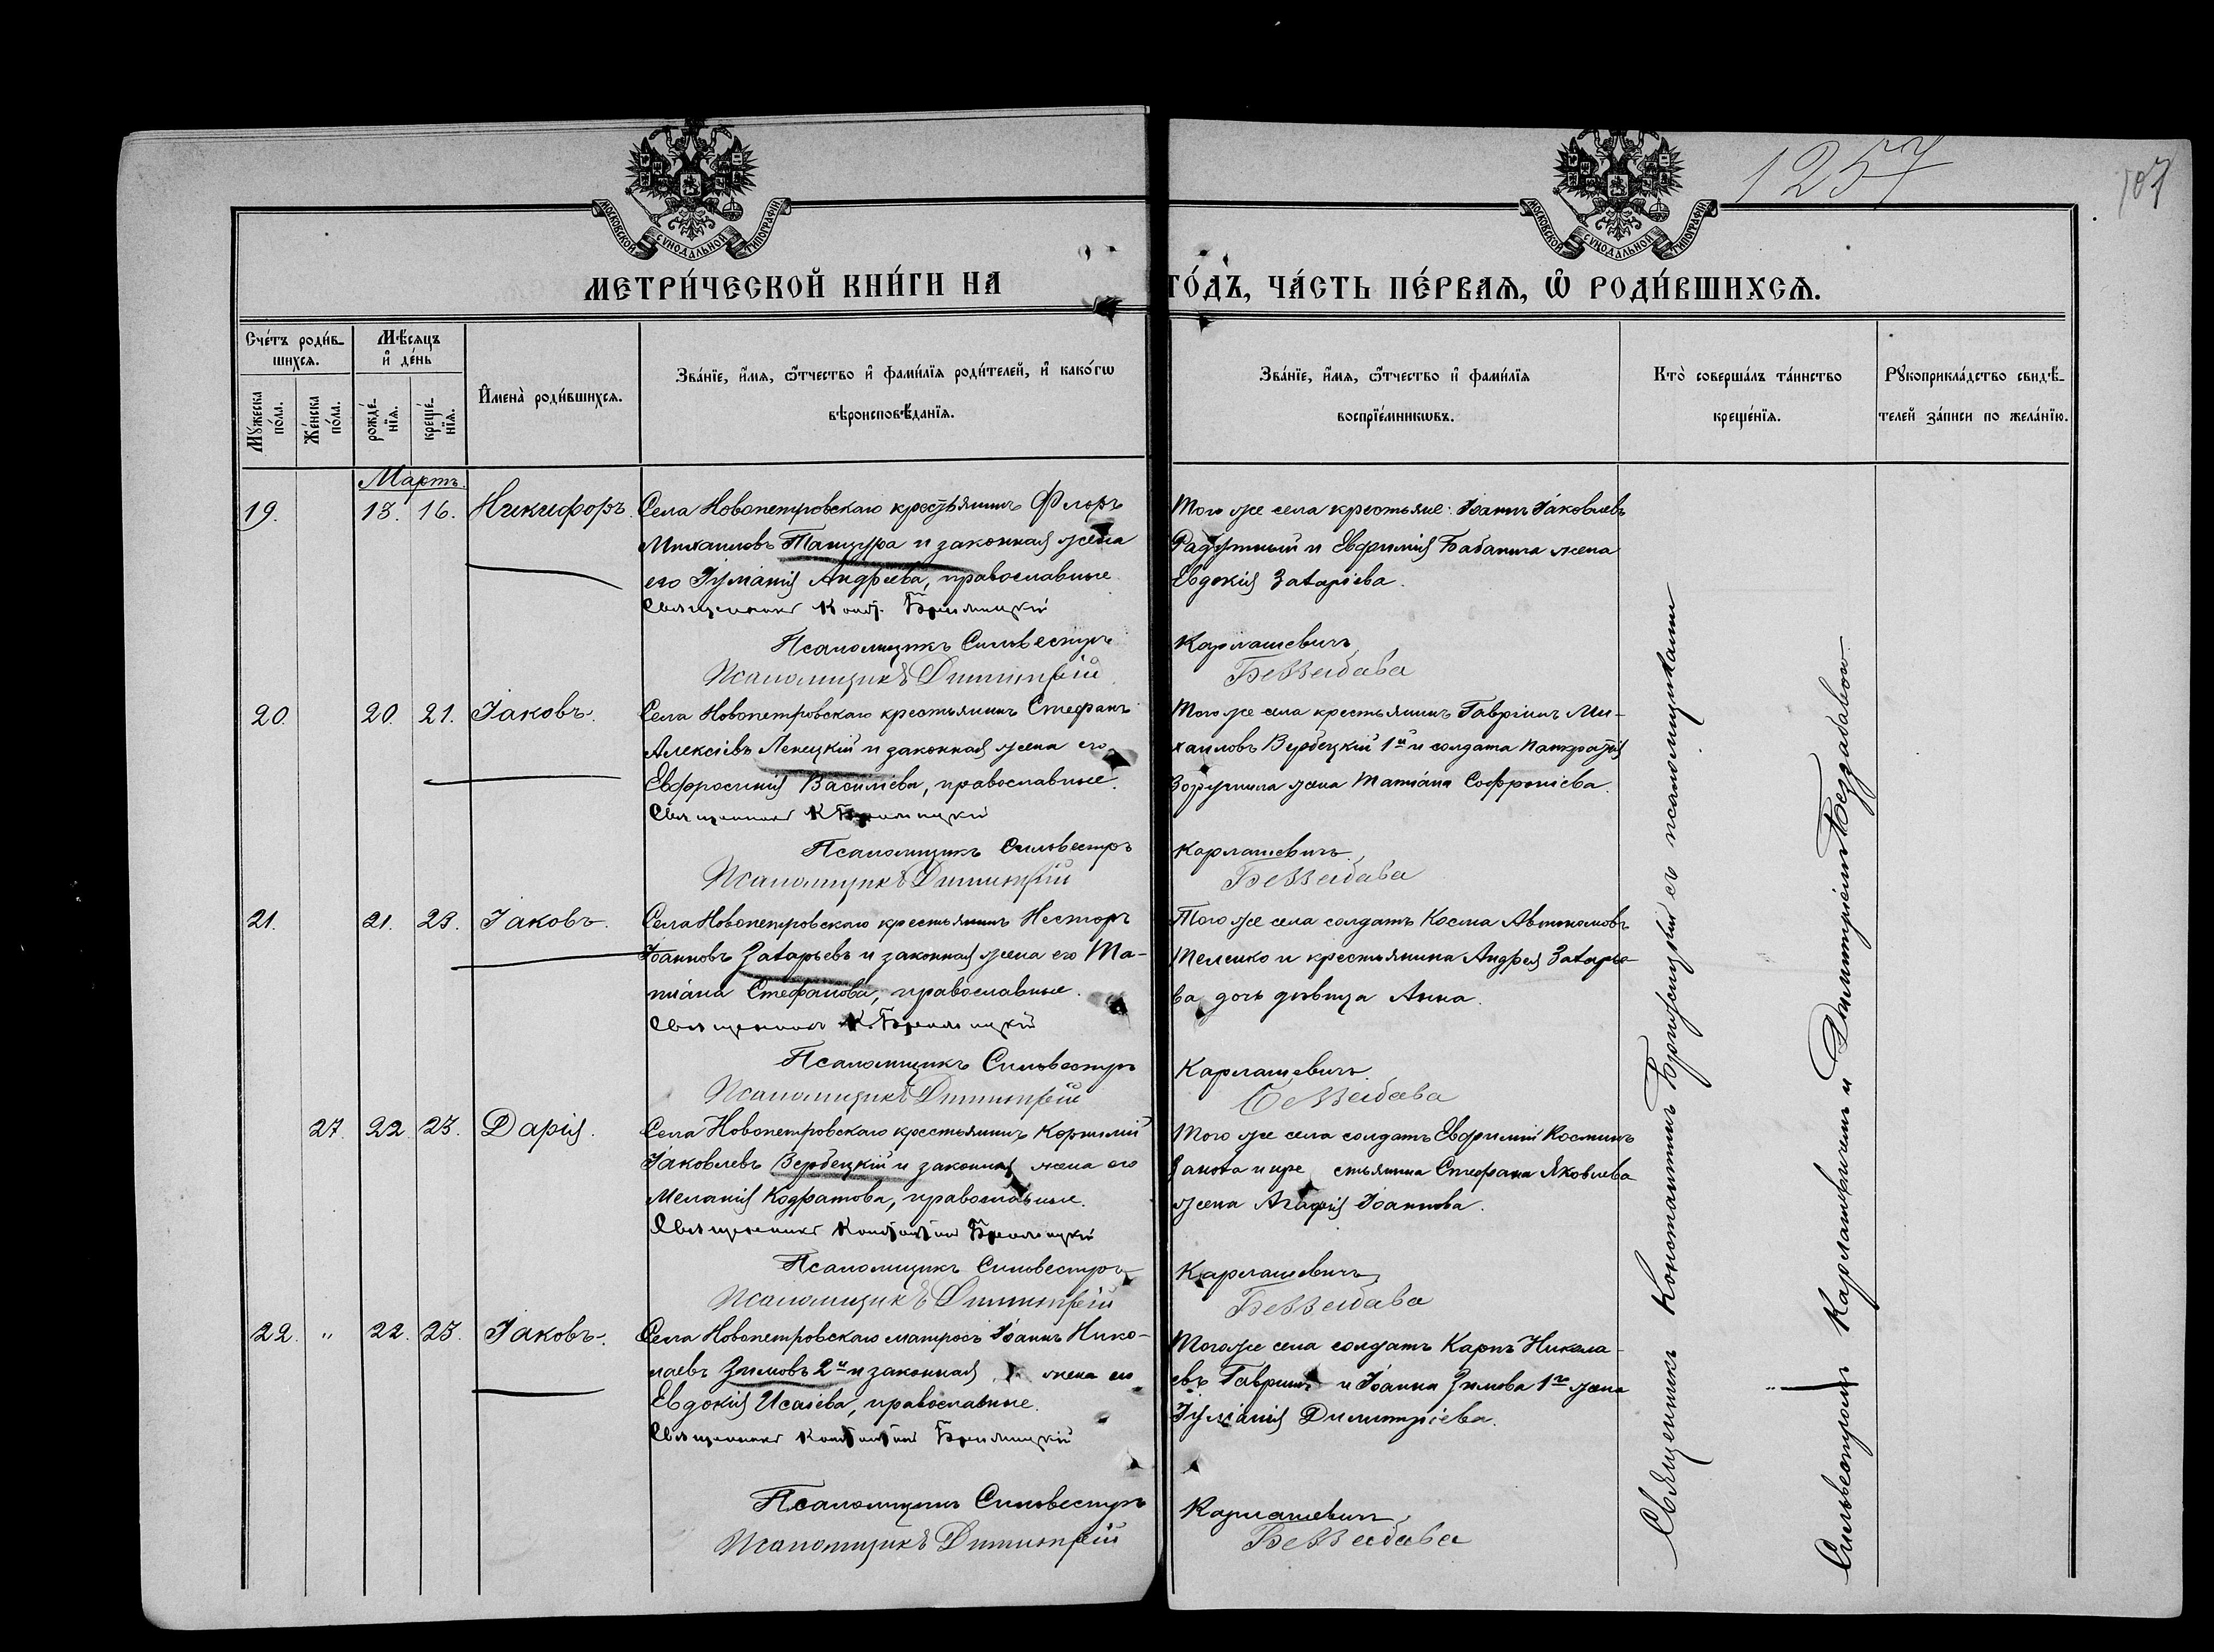 1257
107
МОСКОВСКОЙ СѴНОДАЛЬНОЙ ТИПОГРАФІИ
МОСКОВСКОЙ СѴНОДАЛЬНОЙ ТИПОГРАФІИ
МЕТРИ́ЧЕСКОЙ КНИ́ГИ НА
ГО́ДЪ, ЧА́СТЬ ПЕ́РВАЯ, Ѡ҆ РОДИ́ВШИХСЯ.
Сче́тъ роди́в-
шихся.
Мꙋжеска по́ла.
Же́нска по́ла.
Мѣ́сяцъ
и҆ де́нь
рожде́-
нїя.
креще́-
нїя.
И҆мена̀ роди́вшихся.
Зва́нїе, и҆́мя, ѻ҆́тчество и҆ фами́лїя роди́телей, и҆ како́гѡ
вѣроисповѣ́данїя.
Зва́нїе, и҆́мя, ѻ҆́тчество и҆ фами́лїя
воспрїе́мникѡвъ.
Кто̀ соверша́лъ та́инство
креще́нїя.
Рꙋкоприкла́дство свидѣ́-
телей за́писи по жела́нїю.
Мартъ.
19. 13. 16. Никифоръ.
Села Новопетровскаго крестьянинъ Флоръ
Михаиловъ Танцура и законная жена
его Іуліанія Андреева, православные.
Священникъ Конст. Бржежицкій
Псаломщикъ Сильвестръ
Псаломщикъ Димитрій
Того же села крестьяне: Іоаннъ Іаковлевъ
Радутный и Евфимія Бабанина жена
Евдокія Захаріева.
Карлашевичъ
Беззабава
20. 20. 21. Іаковъ.
Села Новопетровскаго крестьянинъ Стефанъ
Алексіевъ Ленецкій и законная жена его
Евфросинія Василіева, православные.
Священникъ К Бржежицкій
Псаломщикъ Сильвестръ
Псаломщикъ Димитрій
Того же села крестьянинъ Гавріилъ Ми-
хаиловъ Вербецкій 1й и солдата Панкратія
жена Татіана Софроніева.
Карлашевичъ
Беззабава
21. 21. 23. Іаковъ.
Села Новопетровскаго крестьянинъ Несторъ
Іоанновъ Захарьевъ и законная жена его Та-
тіана Стефанова, православные.
Священникъ К. Бржежицкій
Псаломщикъ Сильвестръ
Псаломщикъ Димитрій
Того же села солдатъ Косма Автономовъ
Телешко и крестьянина Андрея Захарье-
ва дочь дѣвица Анна.
Карлашевичъ
Беззабава
27. 22. 23. Дарія.
Села Новопетровскаго крестьянинъ Корнилій
Іаковлевъ Вербецкій и законная жена его
Меланія Кодратова, православные.
Священникъ Константинъ Бржежицкій
Псаломщикъ Сильвестръ
Псаломщикъ Димитрій
Того же села солдатъ Евфимій Косминъ
и кре стьянина Стефана Яковлева
жена Агафія Іоаннова.
Карлашевичъ
Беззабава
22. " 22. 23. Іаковъ.
Села Новопетровскаго матросъ Іоаннъ Нико-
лаевъ Зимовъ 2й и законная жена его
Евдокія Исаіева, православные.
Священникъ Константинъ Бржежицкій
Псаломщикъ Сильвестръ
Псаломщикъ Димитрій
Того же села солдатъ Карпъ Никола-
евъ Гаврил и Іоанна Зимова 1го жена
Іуліанія Димитріева.
Карлашевичъ
Беззабава
Священникъ Константинъ Бржежицкій съ псаломщиками
Сильвестромъ Карлашевичемъ и Димитріемъ Беззабавою.